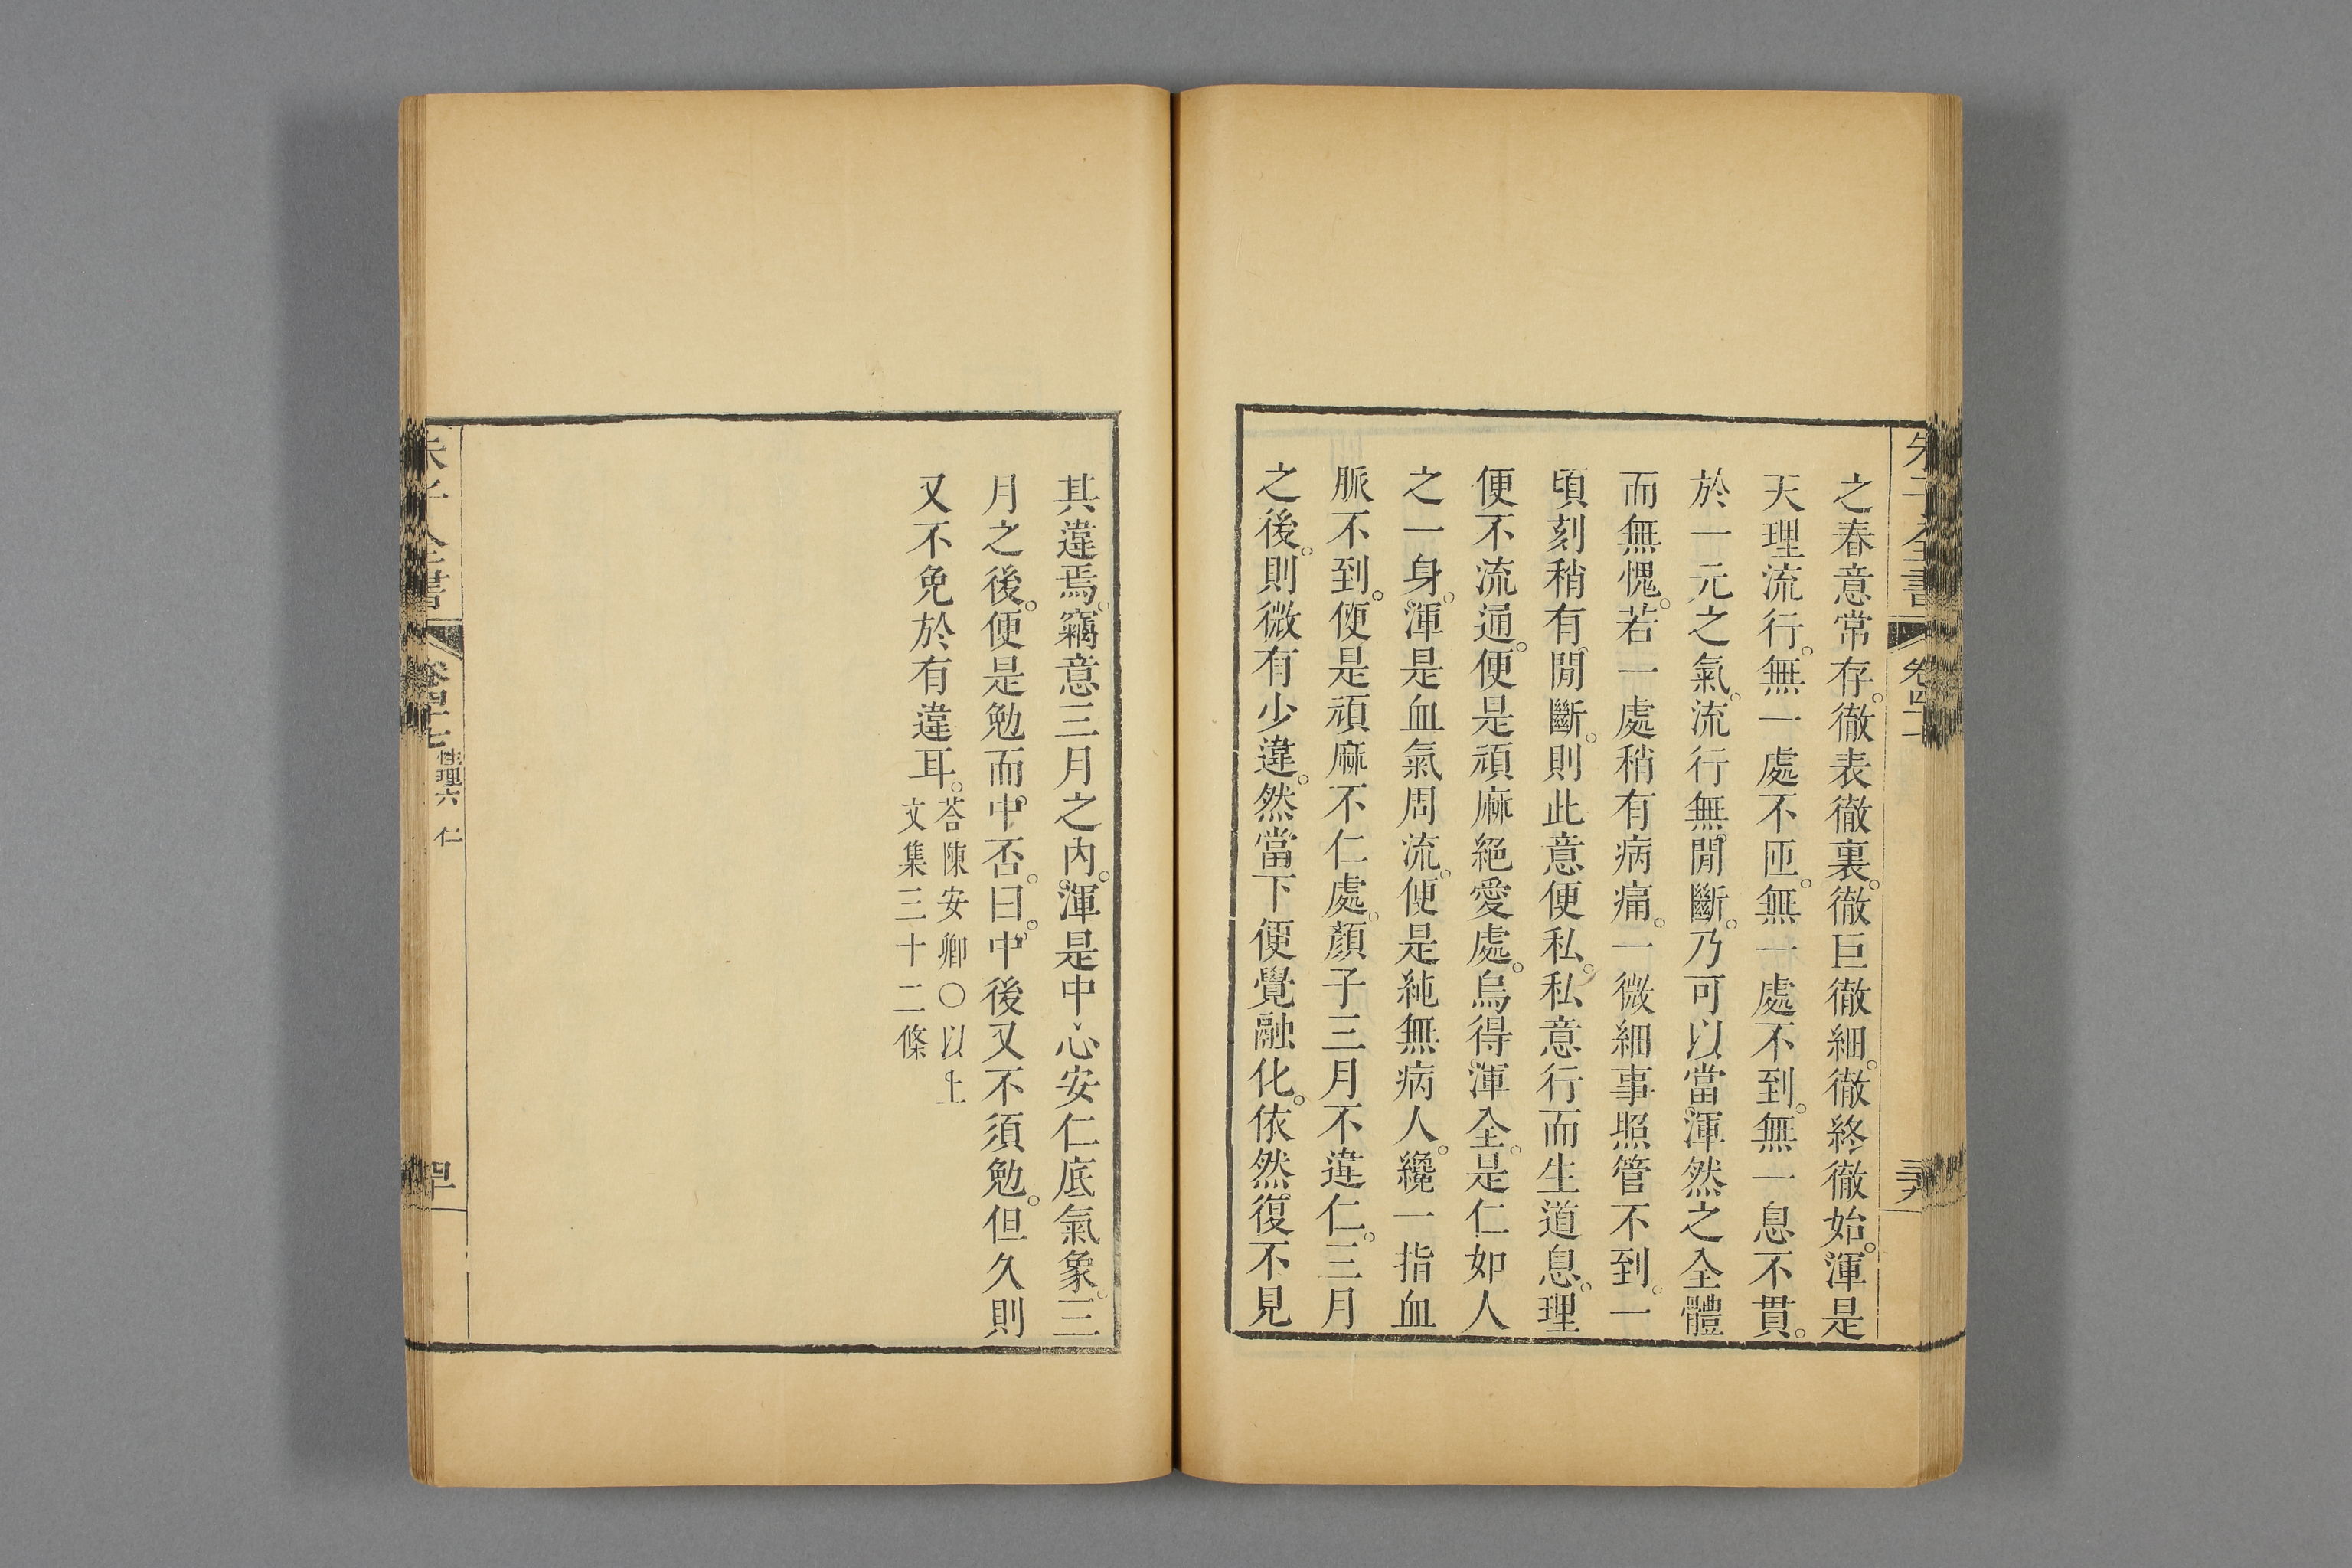 之春意常存。徹表徹裏。徹巨徹細。徹終徹始。渾是
天理流行。無一處不匝。無一處不到。無一息不貫。
於一元之氣。流行無閒斷。乃可以當渾然之全體
而無愧。若一處稍有病痛。一微細事照管不到。一
頃刻稍有閒斷。則此意便私。私意行而生道息。理
便不流通。便是頑麻絕愛處。烏得渾全。是仁如人
之一身。渾是血氣周流。便是純無病人。纔一指血
脈不到。便是頑麻不仁處。顏子三月不違仁。三月
之後。則微有少違。然當下便覺融化。依然復不見
其違焉。竊意三月之內。渾是中心安仁底氣象。三
月之後。便是勉而中否。曰。中後又不須勉。但久則
又不免於有違耳。
荅陳安卿○以上
文集三十二條
全書
性理六 仁